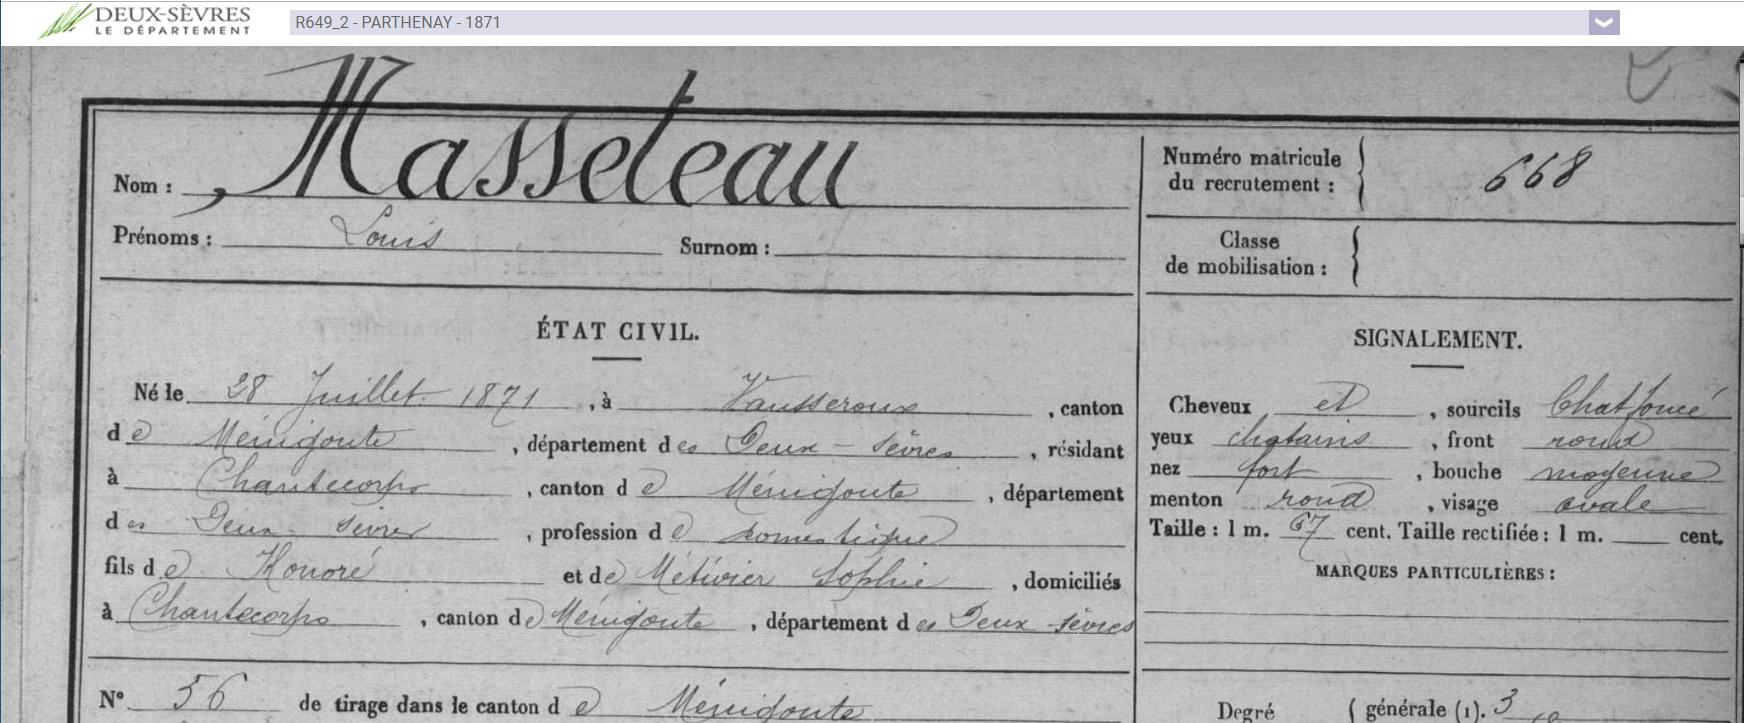 DEUX-SÈVRES
LE DÉPARTEMENT
R649_2 - PARTHENAY - 1871
Nom : Masseteau
Prénoms : Louis Surnom :
Numéro matricule du recrutement : 668
Classe de mobilisation :
ÉTAT CIVIL.
Né le 28 Juillet 1871, à Vausseroux, canton
de Ménigoute, département des Deux-Sèvres, résidant
à Chantecorps, canton de Ménigoute, département
des Deux-Sèvres, profession de domestique
fils de Honoré et de Métivier Sophie, domiciliés
à Chantecorps, canton de Ménigoute, département des Deux-Sèvres
N° 56 de tirage dans le canton de Ménigoute
SIGNALEMENT.
Cheveux et, sourcils Chat foncé
yeux chatains, front rond
nez fort, bouche moyenne
menton rond, visage ovale
Taille : 1 m. 67 cent. Taille rectifiée : 1 m. cent.
MARQUES PARTICULIÈRES :
Degré générale (1). 3